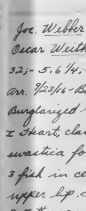 Joe. Webber
Oscar Weith
32;- 5.6 1/4;-
arr. 9/23/16-B
Burglarized
I Heart, cla
swastica fo
3 fish in ce
upper lip. c